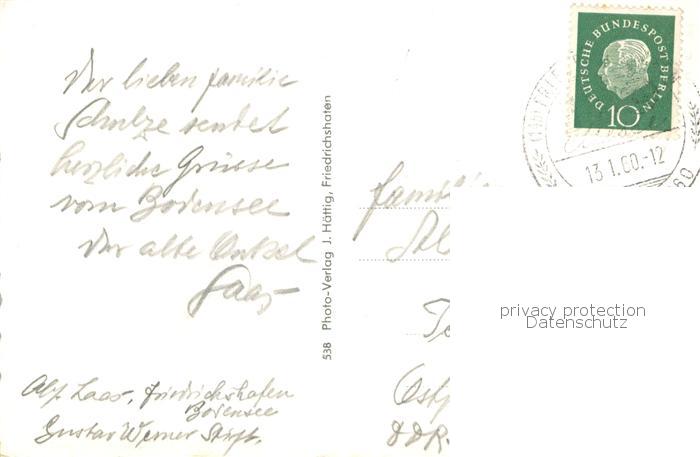 Der lieben Familie
Schulze sendet
herzliche Grüsse
vom Bodensee
der alte Onkel
Laas
Alf. Laas, Friedrichshafen
Bodensee
Gustav Werner Stift.
538 Photo-Verlag J. Hättig, Friedrichshafen
DEUTSCHE BUNDESPOST BERLIN
10
13.1.60.-12
Famili
privacy protection
Datenschutz
DDR.